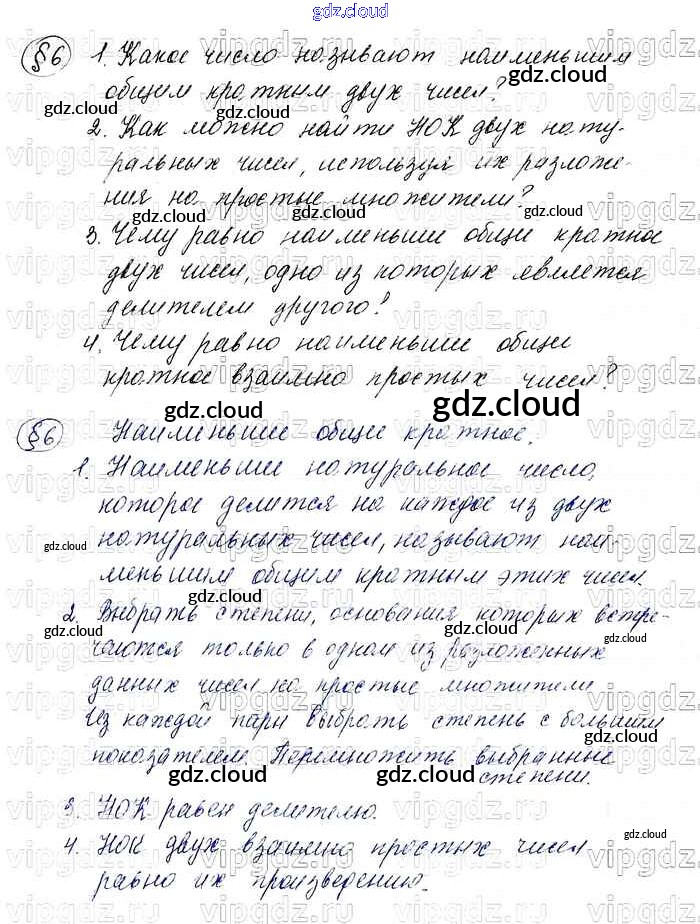 gdz.cloud
§6 1. Какое число называют наименьшим
общим кратним двух чисел?
2. Как можно найти НОК двух нату-
ральных чисел, используя их разложе-
ния на простые множители?
3. Чему равно наименьше общие кратное
двух чисел, одно из которых является
делителем другого?
4. Чему равно наименьше общие
кратное взаимно простых чисел?
§6 Наименьше общие кратное.
1. Наименьше натуральное число,
которое делится на каждое из двух
натуральных чисел, называют наи-
меньшим общим кратным этих чисел.
2. Выбрать степени, основания которых встре-
чаются только в одном из разложенных
данных чисел на простые множители.
Из каждой пары выбрать степень с большим
показателем. Перемножить выбранные
степени.
3. НОК равен делителю.
4. НОК двух взаимно простых чисел
равно их произведению.